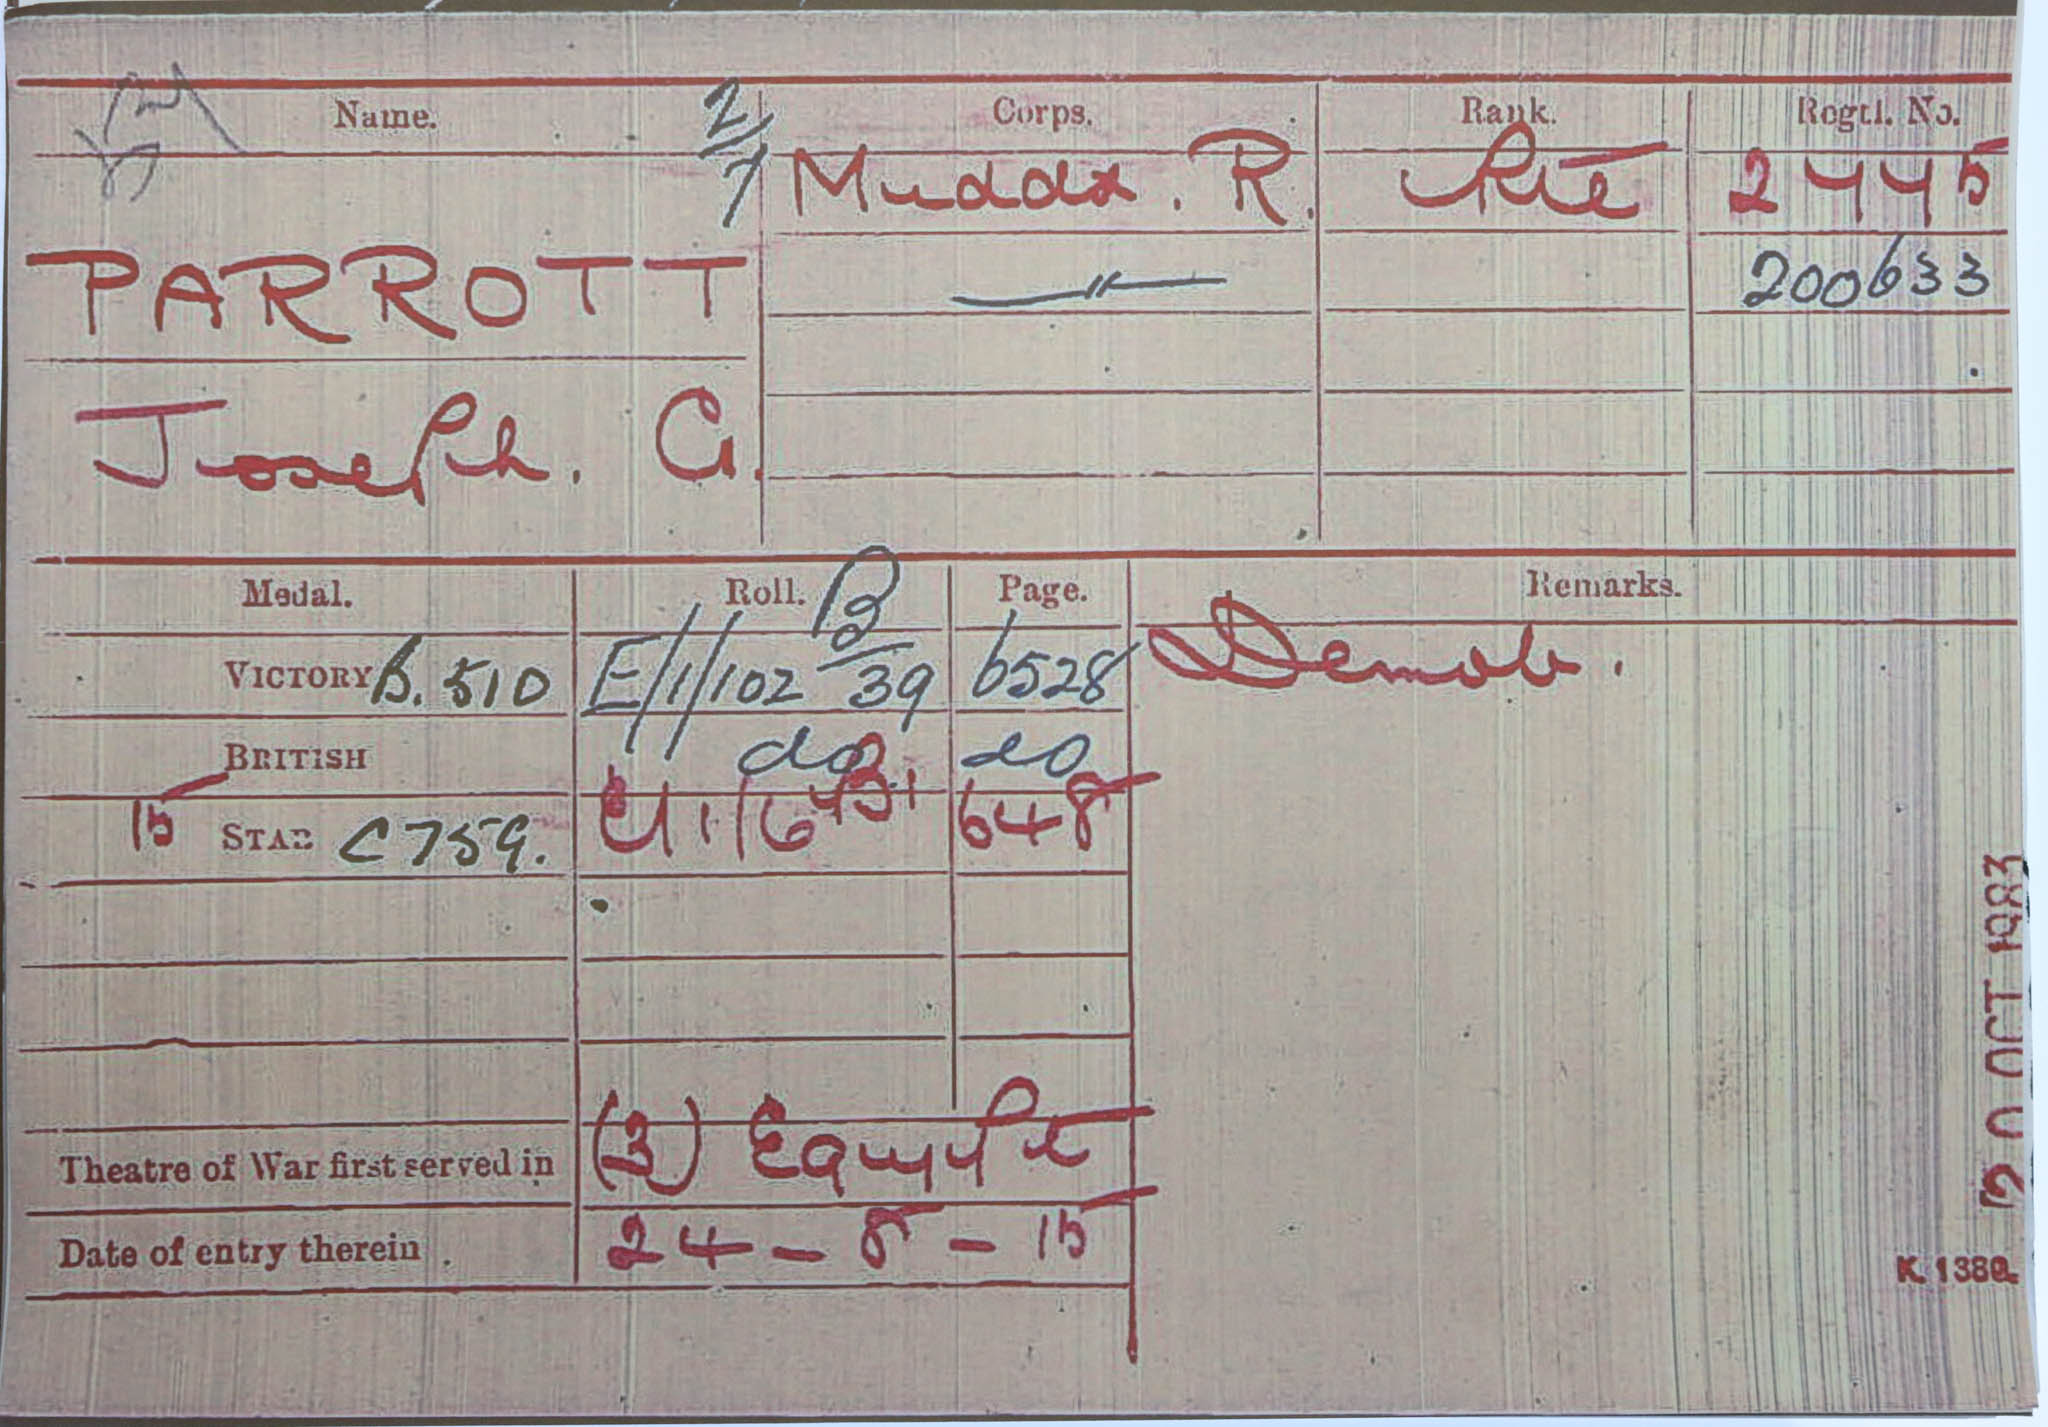 Name. Corps. Rank. Regtl. No.
2/7 Middx. R. Pte 2445
PARROTT 〃 200633
Joseph. G.
Medal. Roll. Page. Remarks.
VICTORY B. 510 E/1/102 B/39 6528 Demob.
BRITISH do do
15 STAR C759. 648
Theatre of War first served in (3) Egypt
Date of entry therein 24 - 8 - 15
20 OCT 1983
K. 1380.